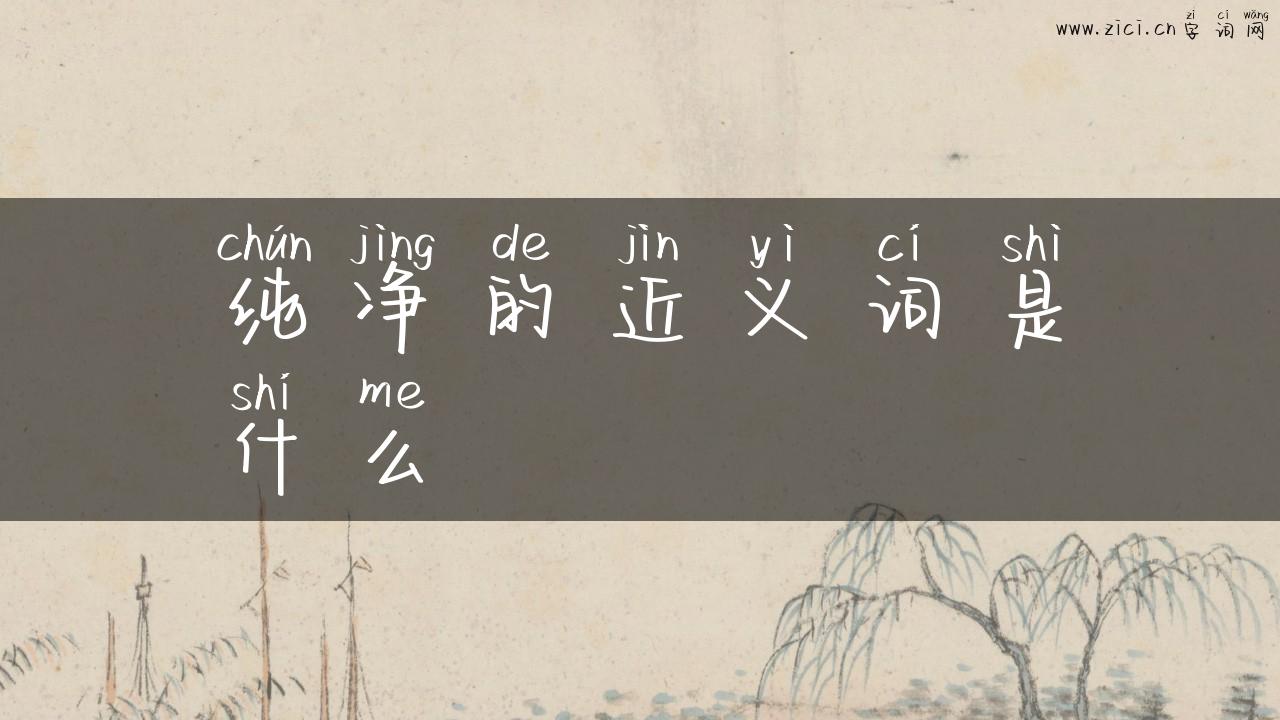 zì cí wǎng
www.zici.cn 字词网
chún jìng de jìn yì cí shì
纯净的近义词是
shí me
什么